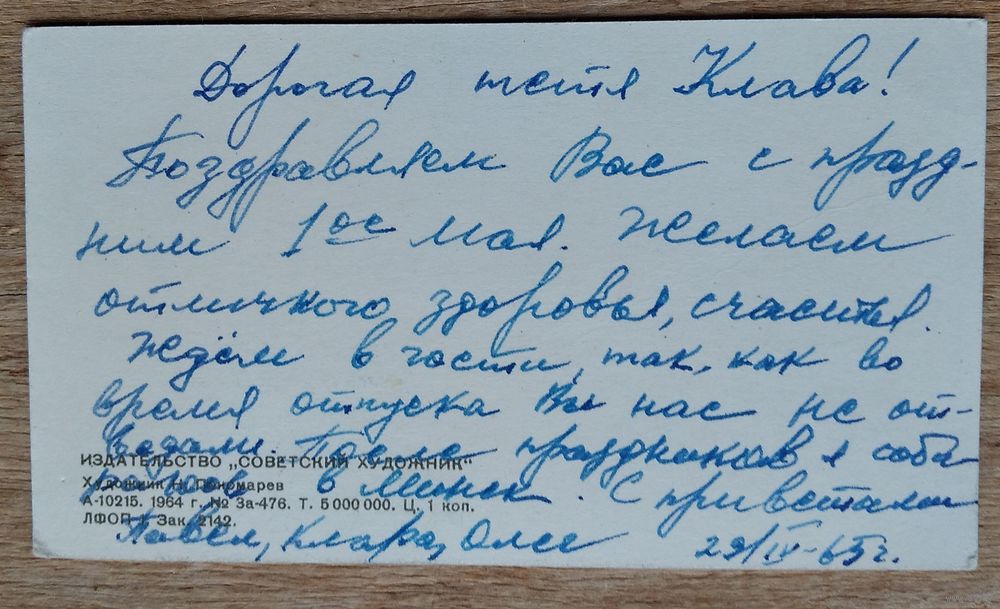 Дорогая тетя Клава!
Поздравляем Вас с празд-
ником 1ое мая. Желаем
отличного здоровья, счастья.
Ждём в гости, так, как во
время отпуска Вы нас не от-
ведали. После праздников я соби
в Минск. С приветами
Павел, Клара, Олег
29/IV-65г.
ИЗДАТЕЛЬСТВО „СОВЕТСКИЙ ХУДОЖНИК"
Художник Н. Пономарев
А-10215. 1964 г. № 3а-476. Т. 5 000 000. Ц. 1 коп.
ЛФОП 1. Зак. 2142.